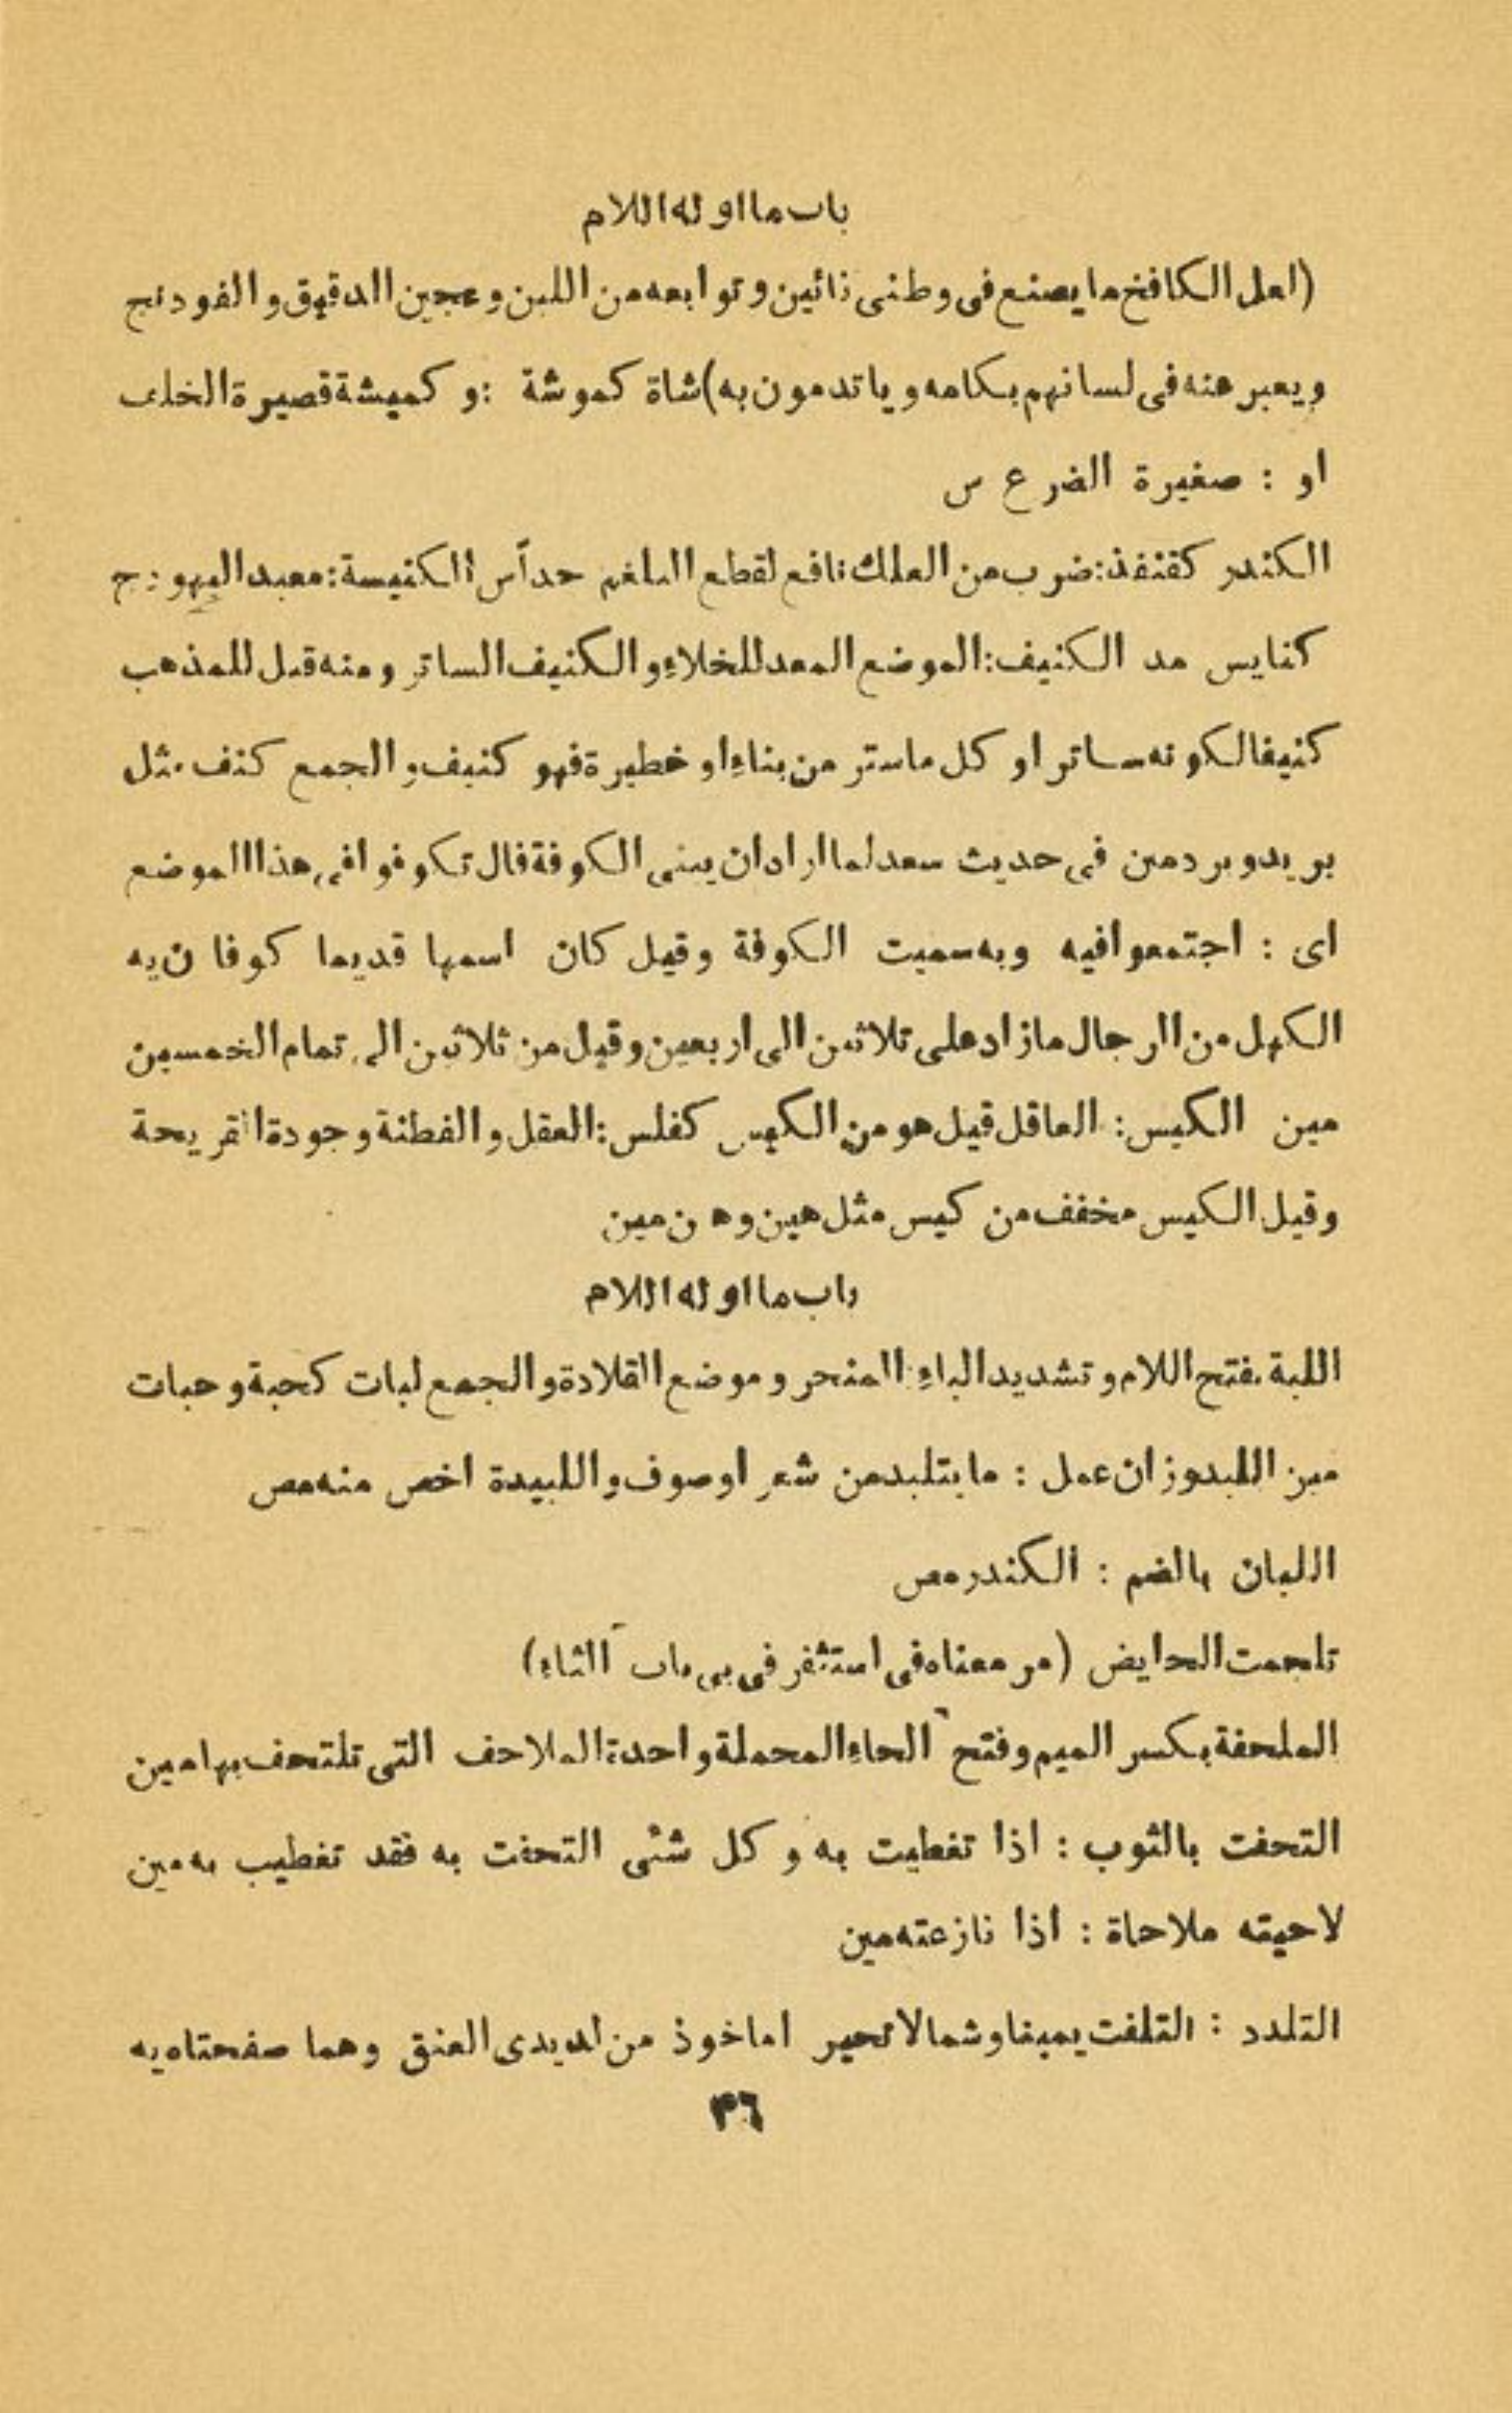 باب ما اوله اللام
(لعل الكافخ ما يصنع فى وطنى نائين و توابعه من اللبن و عجين الدقيق و الفودنج
و يعبر عنه فى لسانهم بكامه و ياتدمون به) شاة كموشة : و كميشة قصيرة الخلف
او : صغيرة الضرع س
الكندر كقنفذ: ضرب من العلك نافع لقطع البلغم حداً س الكنيسة: معبد اليهود ج
كنايس مد الكنيف: الموضع المعد للخلاء و الكنيف الساتر و منه قيل للمذهب
كنيفا لكونه ساتر او كل ما ستر من بناء او خطيرة فهو كنيف و الجمع كنف مثل
بريد و برد مين فى حديث سعد لما اراد ان يبنى الكوفة قال تكوفوا فى هذا الموضع
اى : اجتمعوا فيه و به سميت الكوفة و قيل كان اسمها قديما كوفان يه
الكهل من الرجال ما زاد على ثلاثين الى اربعين و قيل من ثلاثين الى تمام الخمسين
مين الكيس: العاقل قيل هو من الكيس كفلس: العقل و الفطنة و جودة القريحة
و قيل الكيس مخفف من كيس مثل هين و هين مين
باب ما اوله اللام
اللبة بفتح اللام و تشديد الباء المنحر و موضع القلادة و الجمع لبات كحبة و حبات
مين اللبد وزان عمل : ما يتلبد من شعر او صوف و اللبيدة اخص منه مص
اللبان بالضم : الكندر مص
تلجمت الحايض (مر معناه فى استثفر فى باب الثاء)
الملحفة بكسر الميم و فتح الحاء المحملة واحدة الملاحف التى تلتحف بها مين
التحفت بالثوب : اذا تغطيت به و كل شئى التحفت به فقد تغطيب به مين
لاحيته ملاحاة : اذا نازعته مين
التلدد : التلفت يمينا و شمالا تحير اماخوذ من لديدى العنق و هما صفحتاه يه
٤٦